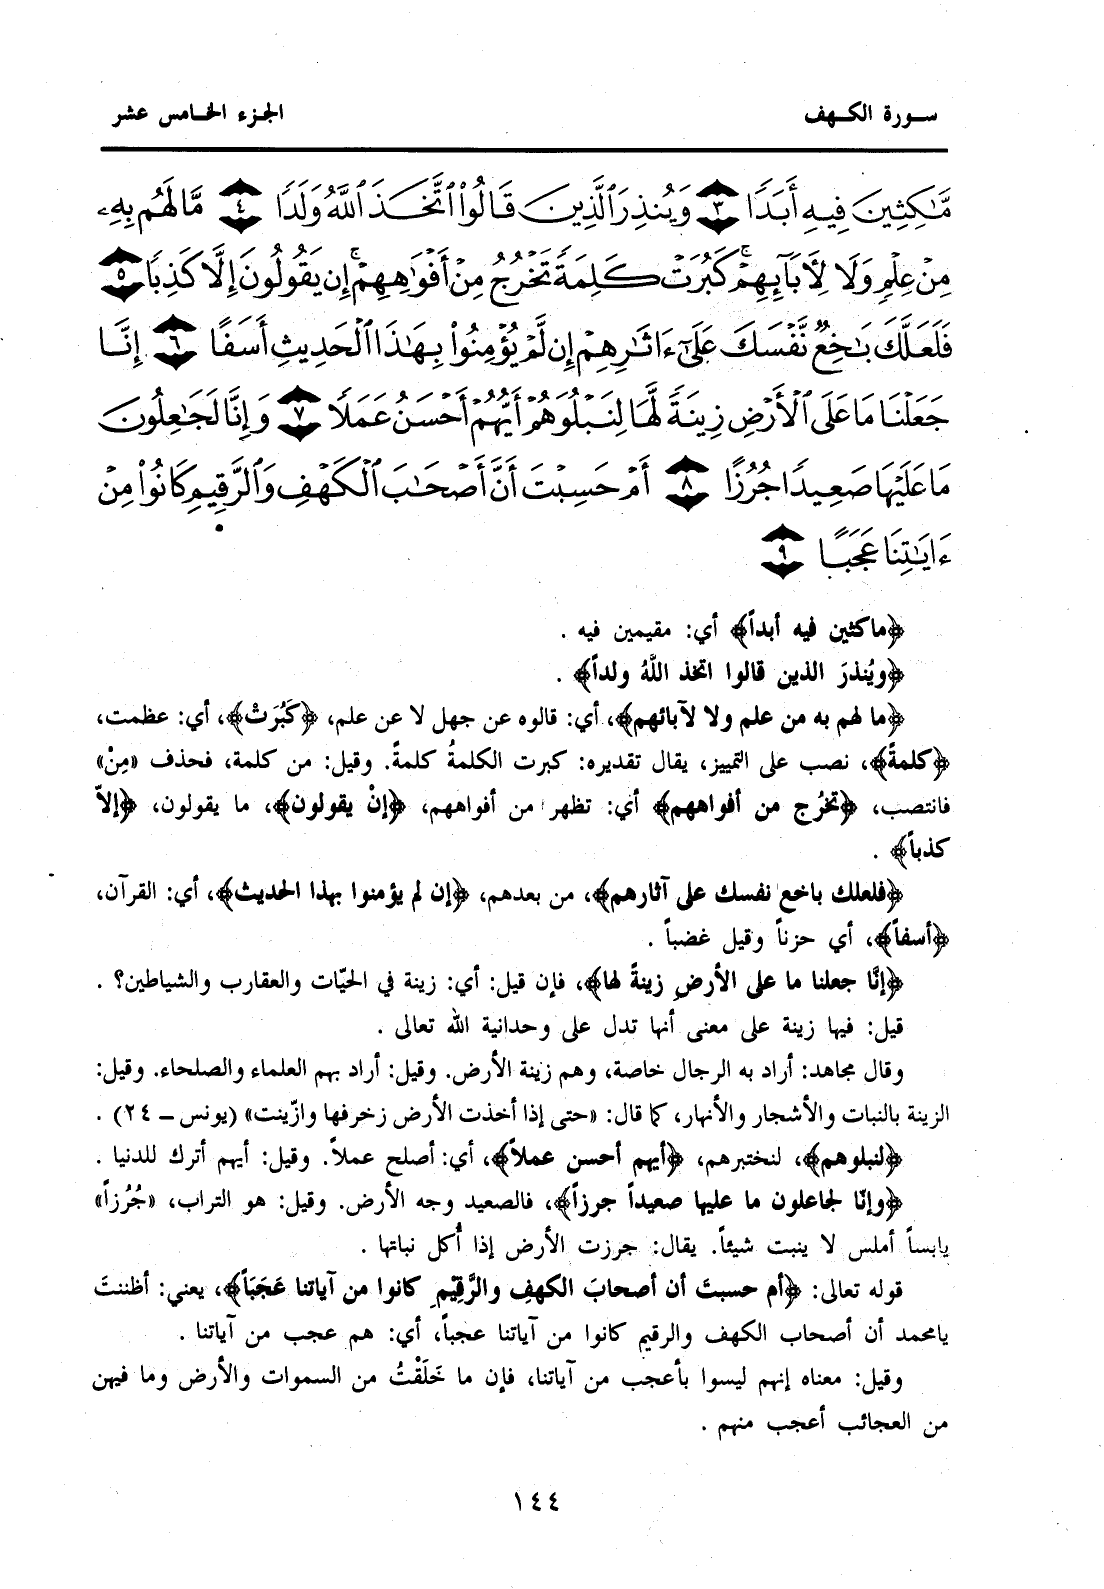 سورة الكهف
الجزء الخامس عشر
مَّٰكِثِينَ فِيهِ أَبَدًا ٣ وَيُنذِرَ ٱلَّذِينَ قَالُوا۟ ٱتَّخَذَ ٱللَّهُ وَلَدًا ٤ مَّا لَهُم بِهِۦ
مِنْ عِلْمٍ وَلَا لِأَبَآئِهِمْ كَبُرَتْ كَلِمَةً تَخْرُجُ مِنْ أَفْوَٰهِهِمْ إِن يَقُولُونَ إِلَّا كَذِبًا ٥
فَلَعَلَّكَ بَٰخِعٌ نَّفْسَكَ عَلَىٰٓ ءَاثَٰرِهِمْ إِن لَّمْ يُؤْمِنُوا۟ بِهَٰذَا ٱلْحَدِيثِ أَسَفًا ٦ إِنَّا
جَعَلْنَا مَا عَلَى ٱلْأَرْضِ زِينَةً لَّهَا لِنَبْلُوَهُمْ أَيُّهُمْ أَحْسَنُ عَمَلًا ٧ وَإِنَّا لَجَٰعِلُونَ
مَا عَلَيْهَا صَعِيدًا جُرُزًا ٨ أَمْ حَسِبْتَ أَنَّ أَصْحَٰبَ ٱلْكَهْفِ وَٱلرَّقِيمِ كَانُوا۟ مِنْ
ءَايَٰتِنَا عَجَبًا ٩
﴿ماكثين فيه أبداً﴾ أي: مقيمين فيه .
﴿ويُنذرَ الذين قالوا اتخذ اللَّهُ ولداً﴾ .
﴿ما لهم به من علم ولا لآبائهم﴾، أي: قالوه عن جهل لا عن علم، ﴿كَبُرَتْ﴾، أي: عظمت،
﴿كلمةً﴾، نصب على التمييز، يقال تقديره: كبرت الكلمةُ كلمةً. وقيل: من كلمة، فحذف «مِنْ»
فانتصب، ﴿تخرُج من أفواههم﴾ أي: تظهر من أفواههم، ﴿إنْ يقولون﴾، ما يقولون، ﴿إلاّ
كذباً﴾ .
﴿فلعلك باخع نفسك على آثارهم﴾، من بعدهم، ﴿إن لم يؤمنوا بهذا الحديث﴾، أي: القرآن،
﴿أسفاً﴾، أي حزناً وقيل غضباً .
﴿إنَّا جعلنا ما على الأرضِ زينةً لها﴾، فإن قيل: أي: زينة في الحيّات والعقارب والشياطين؟ .
قيل: فيها زينة على معنى أنها تدل على وحدانية الله تعالى .
وقال مجاهد: أراد به الرجال خاصة، وهم زينة الأرض. وقيل: أراد بهم العلماء والصلحاء. وقيل:
الزينة بالنبات والأشجار والأنهار، كما قال: «حتى إذا أخذت الأرض زخرفها وازّينت» (يونس – ٢٤) .
﴿لنبلوهم﴾، لنختبرهم، ﴿أيهم أحسن عملاً﴾، أي: أصلح عملاً. وقيل: أيهم أترك للدنيا .
﴿وإنّا لجاعلون ما عليها صعيداً جرزاً﴾، فالصعيد وجه الأرض. وقيل: هو التراب، «جُرُزاً»
يابساً أملس لا ينبت شيئاً. يقال: جرزت الأرض إذا أُكل نباتها .
قوله تعالى: ﴿أم حسبتَ أن أصحابَ الكهفِ والرَّقِيْمِ كانوا من آياتنا عَجَبَاً﴾، يعني: أظننتَ
يامحمد أن أصحاب الكهف والرقيم كانوا من آياتنا عجباً، أي: هم عجب من آياتنا .
وقيل: معناه إنهم ليسوا بأعجب من آياتنا، فإن ما خَلَقْتُ من السموات والأرض وما فيهن
من العجائب أعجب منهم .
١٤٤